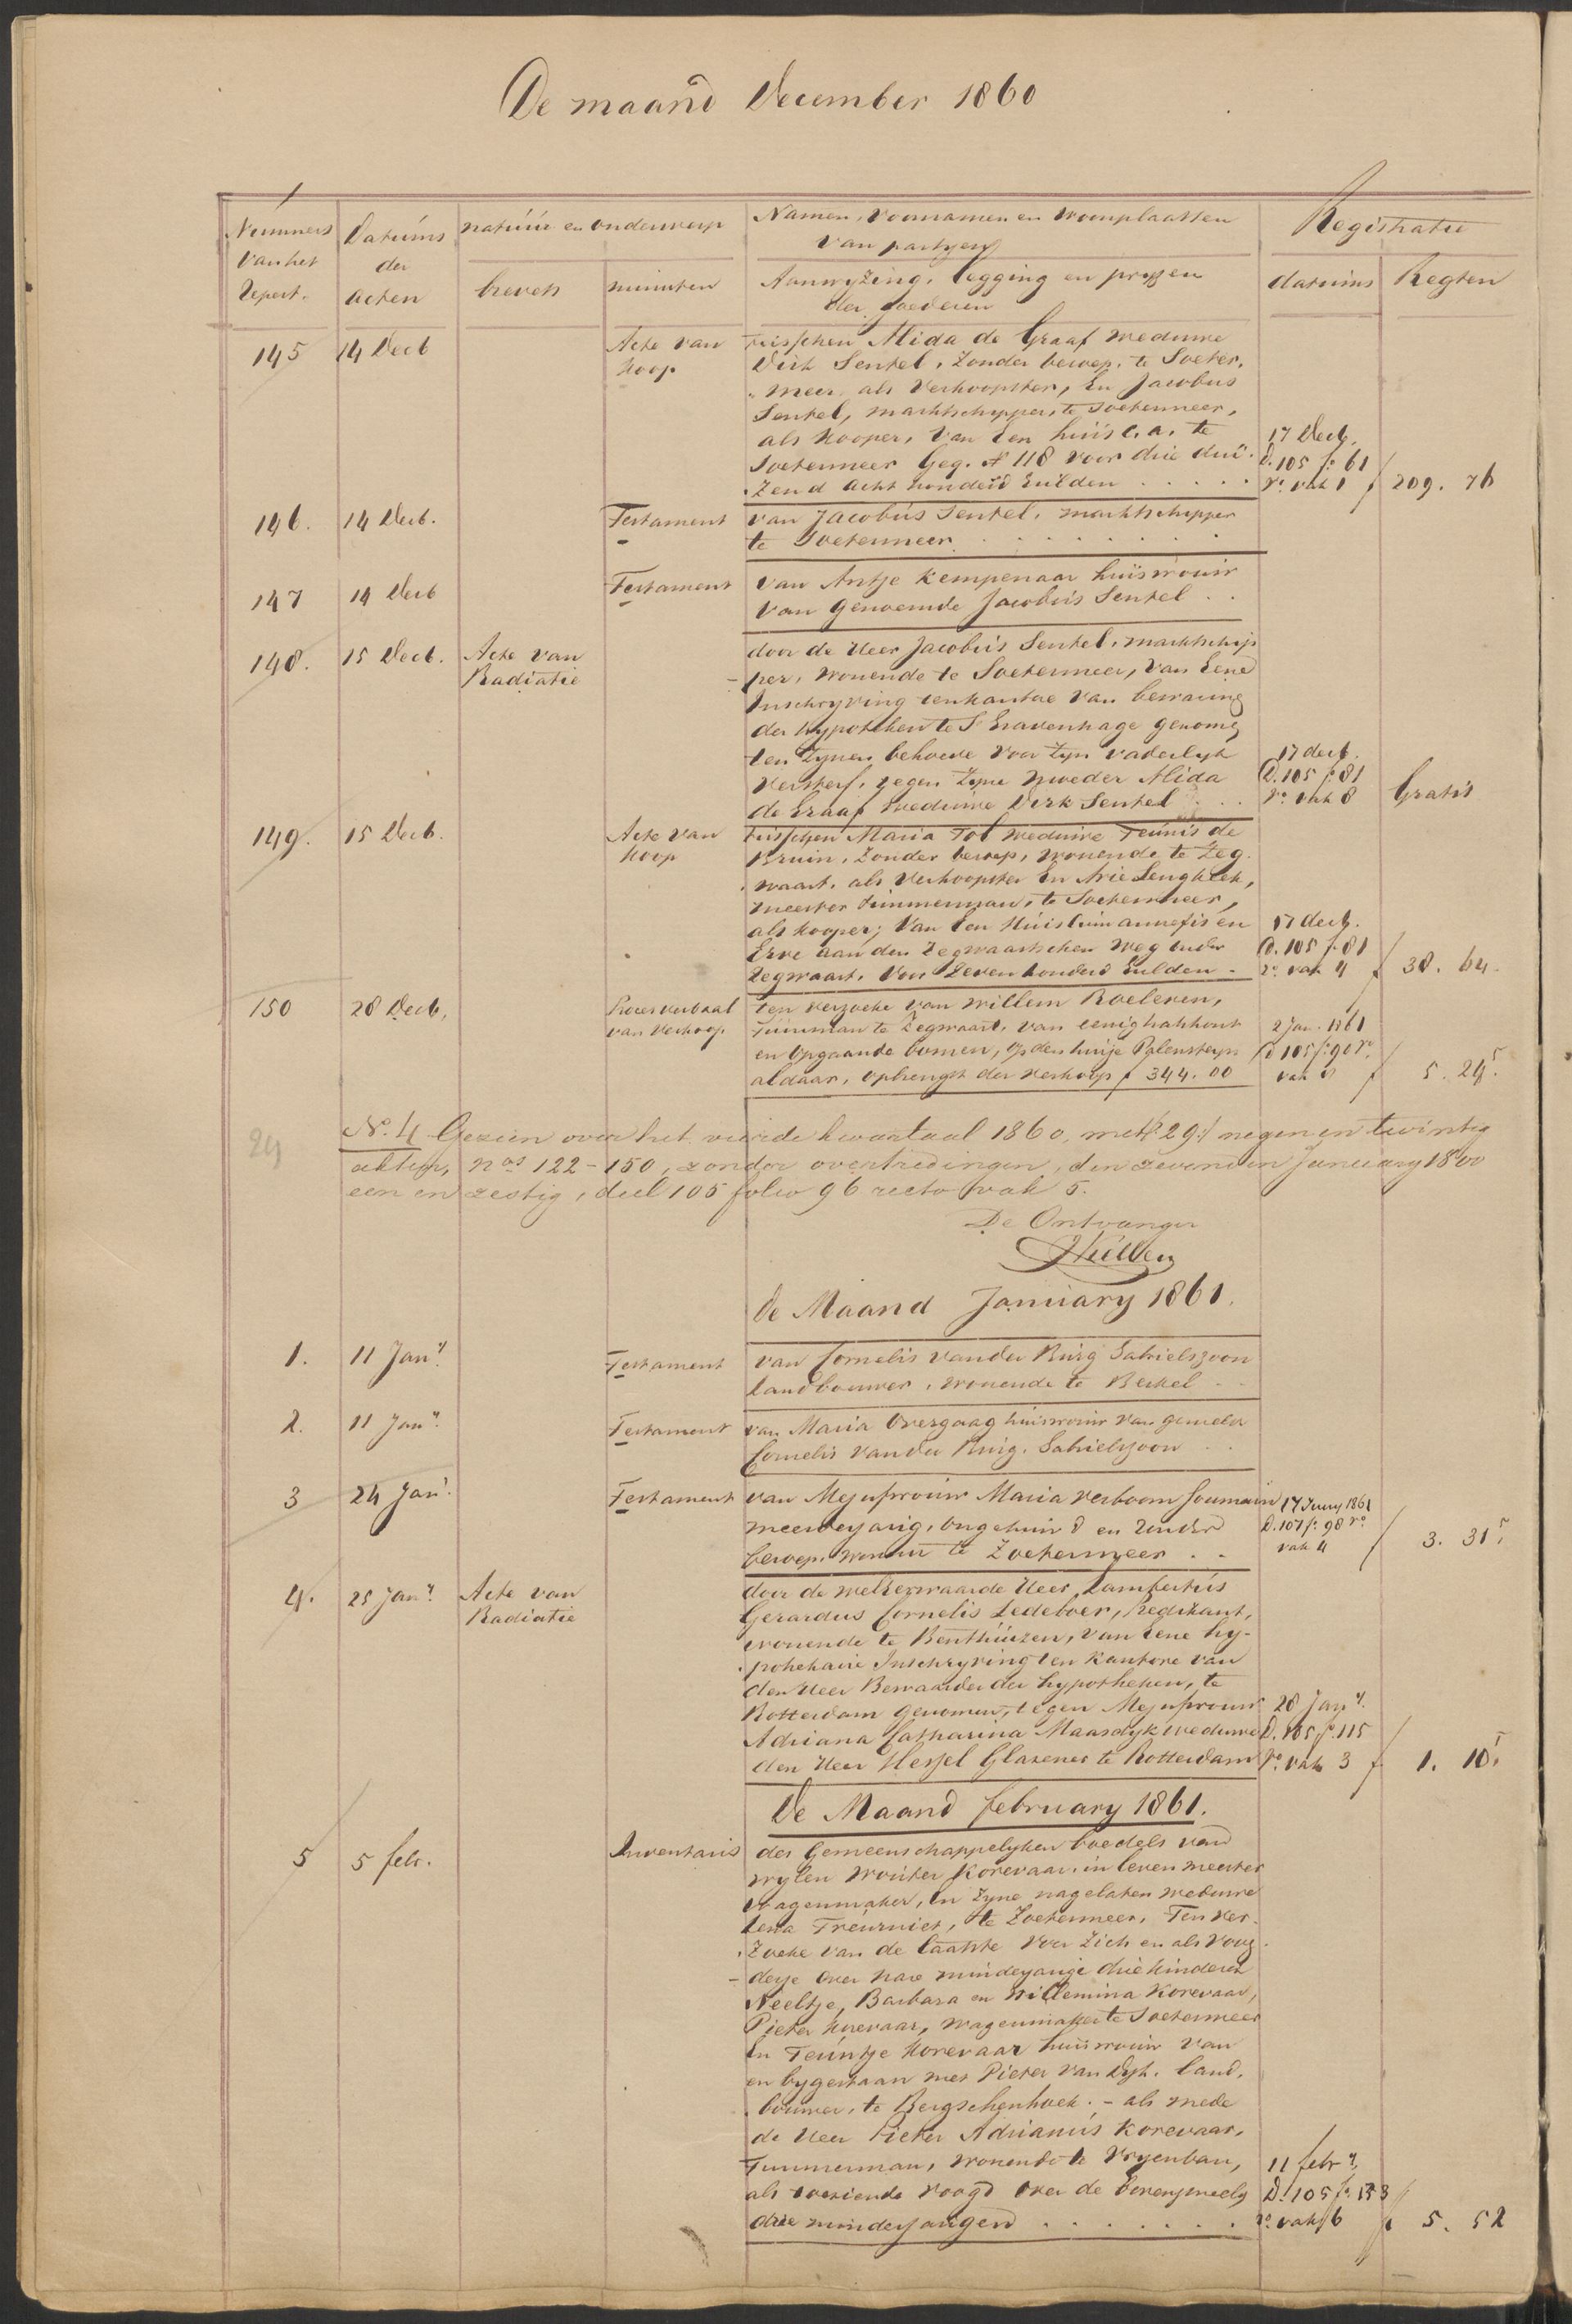 De maand December 1860
Nummers
van het
Repert.
Datums
der
acten
natuur en onderwerp
brevets
minuten
Namen, voornamen en woonplaatsen
van partyen
Aanwyzing, legging en pryzen
der goederen
Registratie
datums
Regten
145
14 Decb
Acte van
Koop
tusschen Alida de Graaf weduwe
Dirk Sentel, zonder beroep, te Soeter,
meer, als Verkoopster, En Jacobus
Sentel, marktschipper, te Soetermeer,
als kooper, van Een huis c.a. te
Soetermeer Geg. N 118 voor drie dui-
zend acht honderd Gulden . . . . .
17 Decb.
D. 105 fo 61
ro vak 1 f 209. 76
146.
14 Decb.
Testament
van Jacobus Sentel, marktschipper
te Soetermeer . . . . . . . .
147
14 Decb
Testament
van Antje Kempenaar huisvrouw
van genoemde Jacobus Sentel . .
148.
15 Decb.
Acte van
Radiatie
door de Heer Jacobus Sentel, marktschip
per, wonende te Soetermeer, van Eene
Inschryving tenkantoe van bewaring
der hypotheken te S Gravenhage genome
ten zynen behoeve voor zyn vaderlyk
Versterf, tegen zyne moeder Alida
de Graaf weduwe Dirk Sentel . . .
17 decb.
D. 105 f. 81
ro vak 8 Gratis
149.
15 Decb.
Acte van
Koop
tusschen Maria Tol weduwe Teunis de
Bruin, zonder beroep, wonende te Zeg.
waart, als Verkoopster En Arie Lengkeek,
meester timmerman, te Soetermeer,
als kooper; van Een Huis tuin annexis en
Erve aan den Zegwaartschen Weg onder
Zegwaart. Voor Zeven honderd Gulden -
17 decb.
D. 105 f. 81
ro vak 4 f 38. 64.
150
28 Decb,
Procesverbaal
van Verkoop
ten verzoeke van Willem Roeleven,
Tuinman te Zegwaart, van eenig hakhout
en opgaande bomen, op den huije Palensteyn
aldaar, opbrengst der verkoop f 344.00
2 Jan. 1861
D 105 f. 90 ro
vak f 5. 24 5.
29
No. 4 Gezien over het vierde kwartaal 1860, met /:29:/ negen en twintig
akten, nos 122-150, zonder overtredingen, den zevenden January 1800
een en zestig, deel 105 folio 96 recto vak 5.
De Ontvanger
de Maand January 1861.
1.
11 Jany.
Testament
van Cornelis van der Burg Gabrielszoon
landbouwer, wonende te Berkel - -
2.
11 Jany.
Testament
van Maria Overgaag huisvrouw van gemelde
Cornelis van der Burg, Gabrielszoon . .
3
24 Jan.
Testament
van Mejufvrouw Maria Verboom
meerderjarig, ongehuwd en zonder
beroep, wonen te Zoetermeer . .
17 Juny 1861
D. 107 f. 98 ro
vak 4 f 3. 31 5.
4.
25 Jany.
Acte van
Radiatie
door de weleerwaarde Heer, Lambertus
Gerardus Cornelis Ledeboer, Predikant,
wonende te Benthuizen, van Eene hy-
pothekaire Inschryving ten Kantore van
den Heer Bewaarder der hypotheken, te
Rotterdam genomen, tegen Mejufvrouw
Adriana Catharina Maasdyk weduwe
den Heer Hessel Glazener te Rotterdam
28 Jany.
D. 105 fo. 115
ro. vak 3 f 1. 10 5.
De Maand february 1861.
5
5 febr.
Inventaris
des Gemeenschappelyken boedels van
wylen Wouter Korevaar, in leven meester
Wagenmaker, En zyne nagelaten weduwe
Lena Treurniet, te Zoetermeer, Ten ver.
zoeke van de laatste voor zich en als voog
desse over hare minderjarige drie kinderen
Neeltje, Barbara en Willemina Korevaar,
Pieter Korevaar, wagenmaker te Soetermeer
En Teuntje Korevaar huisvrouw van
en bygestaan met Pieter van Dyk, land.
bouwer, te Bergschenhoek. - als mede
de Heer Pieter Adrianus Korevaar,
Timmerman, wonende te Vryenban,
als toeziende voogd over de Evengemelde
drie minderjarigen . . . . . . . .
11 febry.
D. 105 f. 133
ro. vak 6 f 5. 52